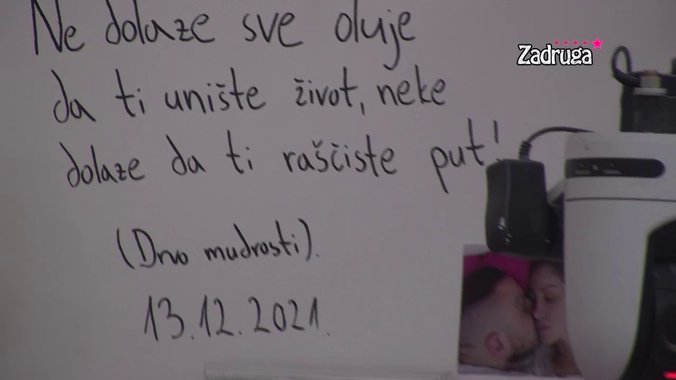 Ne dolaze sve oluje
Zadruga
da ti unište život, neke
dolaze da ti raščiste put!
(Drvo mudrosti).
13.12.2021.